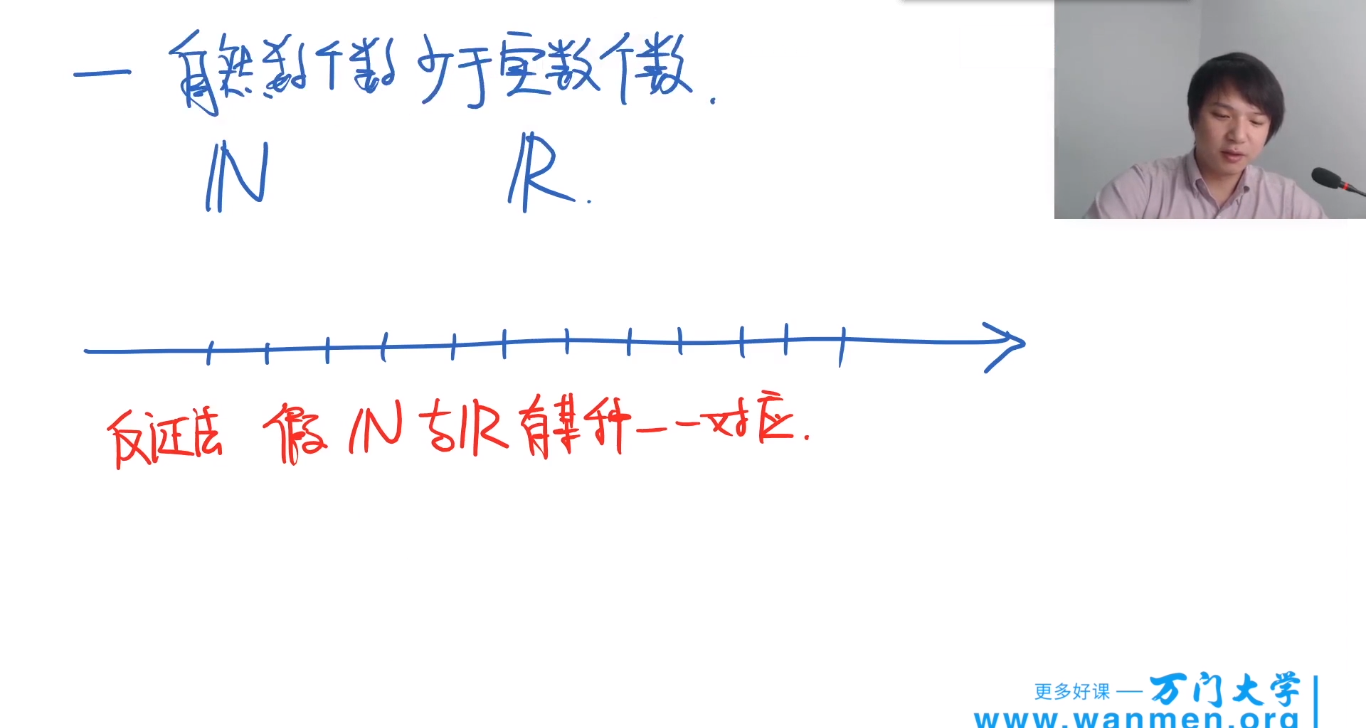 — 自然数个数少于实数个数.
ℕ ℝ.
反证法 假 ℕ与ℝ有某种一一对应.
更多好课 — 万门大学
www.wanmen.org